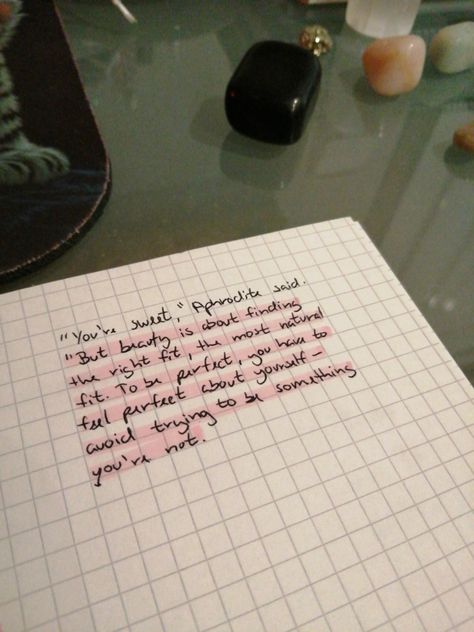 "You're sweet," Aphrodite said.
"But beauty is about finding
the right fit, the most natural
fit. To be perfect, you have to
feel perfect about yourself –
avoid trying to be something
you're not.